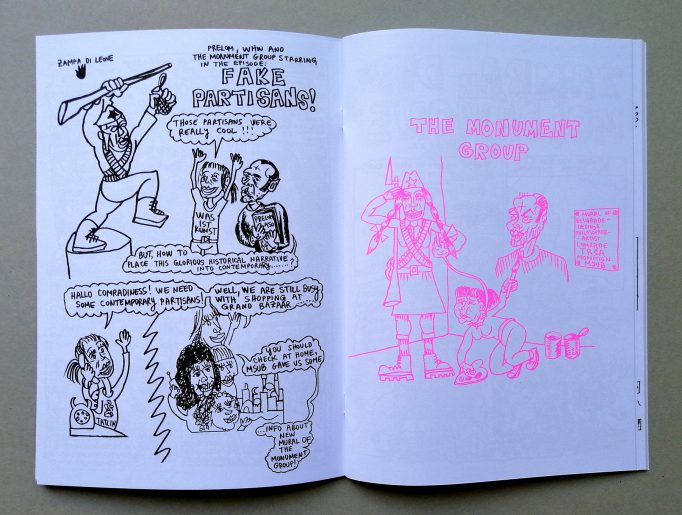 ŽAMPA DI LEONE
PRELOM, WHW AND
THE MONUMENT GROUP STARRING
IN THE EPISODE:
FAKE
PARTISANS!
THOSE PARTISANS WERE
REALLY COOL !!!
WAS
IST
KUNST
PRELOM
BUT, HOW TO
PLACE THIS GLORIOUS HISTORICAL NARRATIVE
INTO CONTEMPORARY......
HALLO COMRADINESS! WE NEED
SOME CONTEMPORARY PARTISANS!
WELL, WE ARE STILL BUSY
WITH SHOPPING AT
GRAND BAZAAR
TATLIN
YOU SHOULD
CHECK AT HOME,
MSUB GAVE US SOME
...INFO ABOUT
NEW
MURAL OF
THE
MONUMENT
GROUP!
THE MONUMENT
GROUP
MURAL OF
BELGRADE-
PHILOSOPHER-
ARTIST